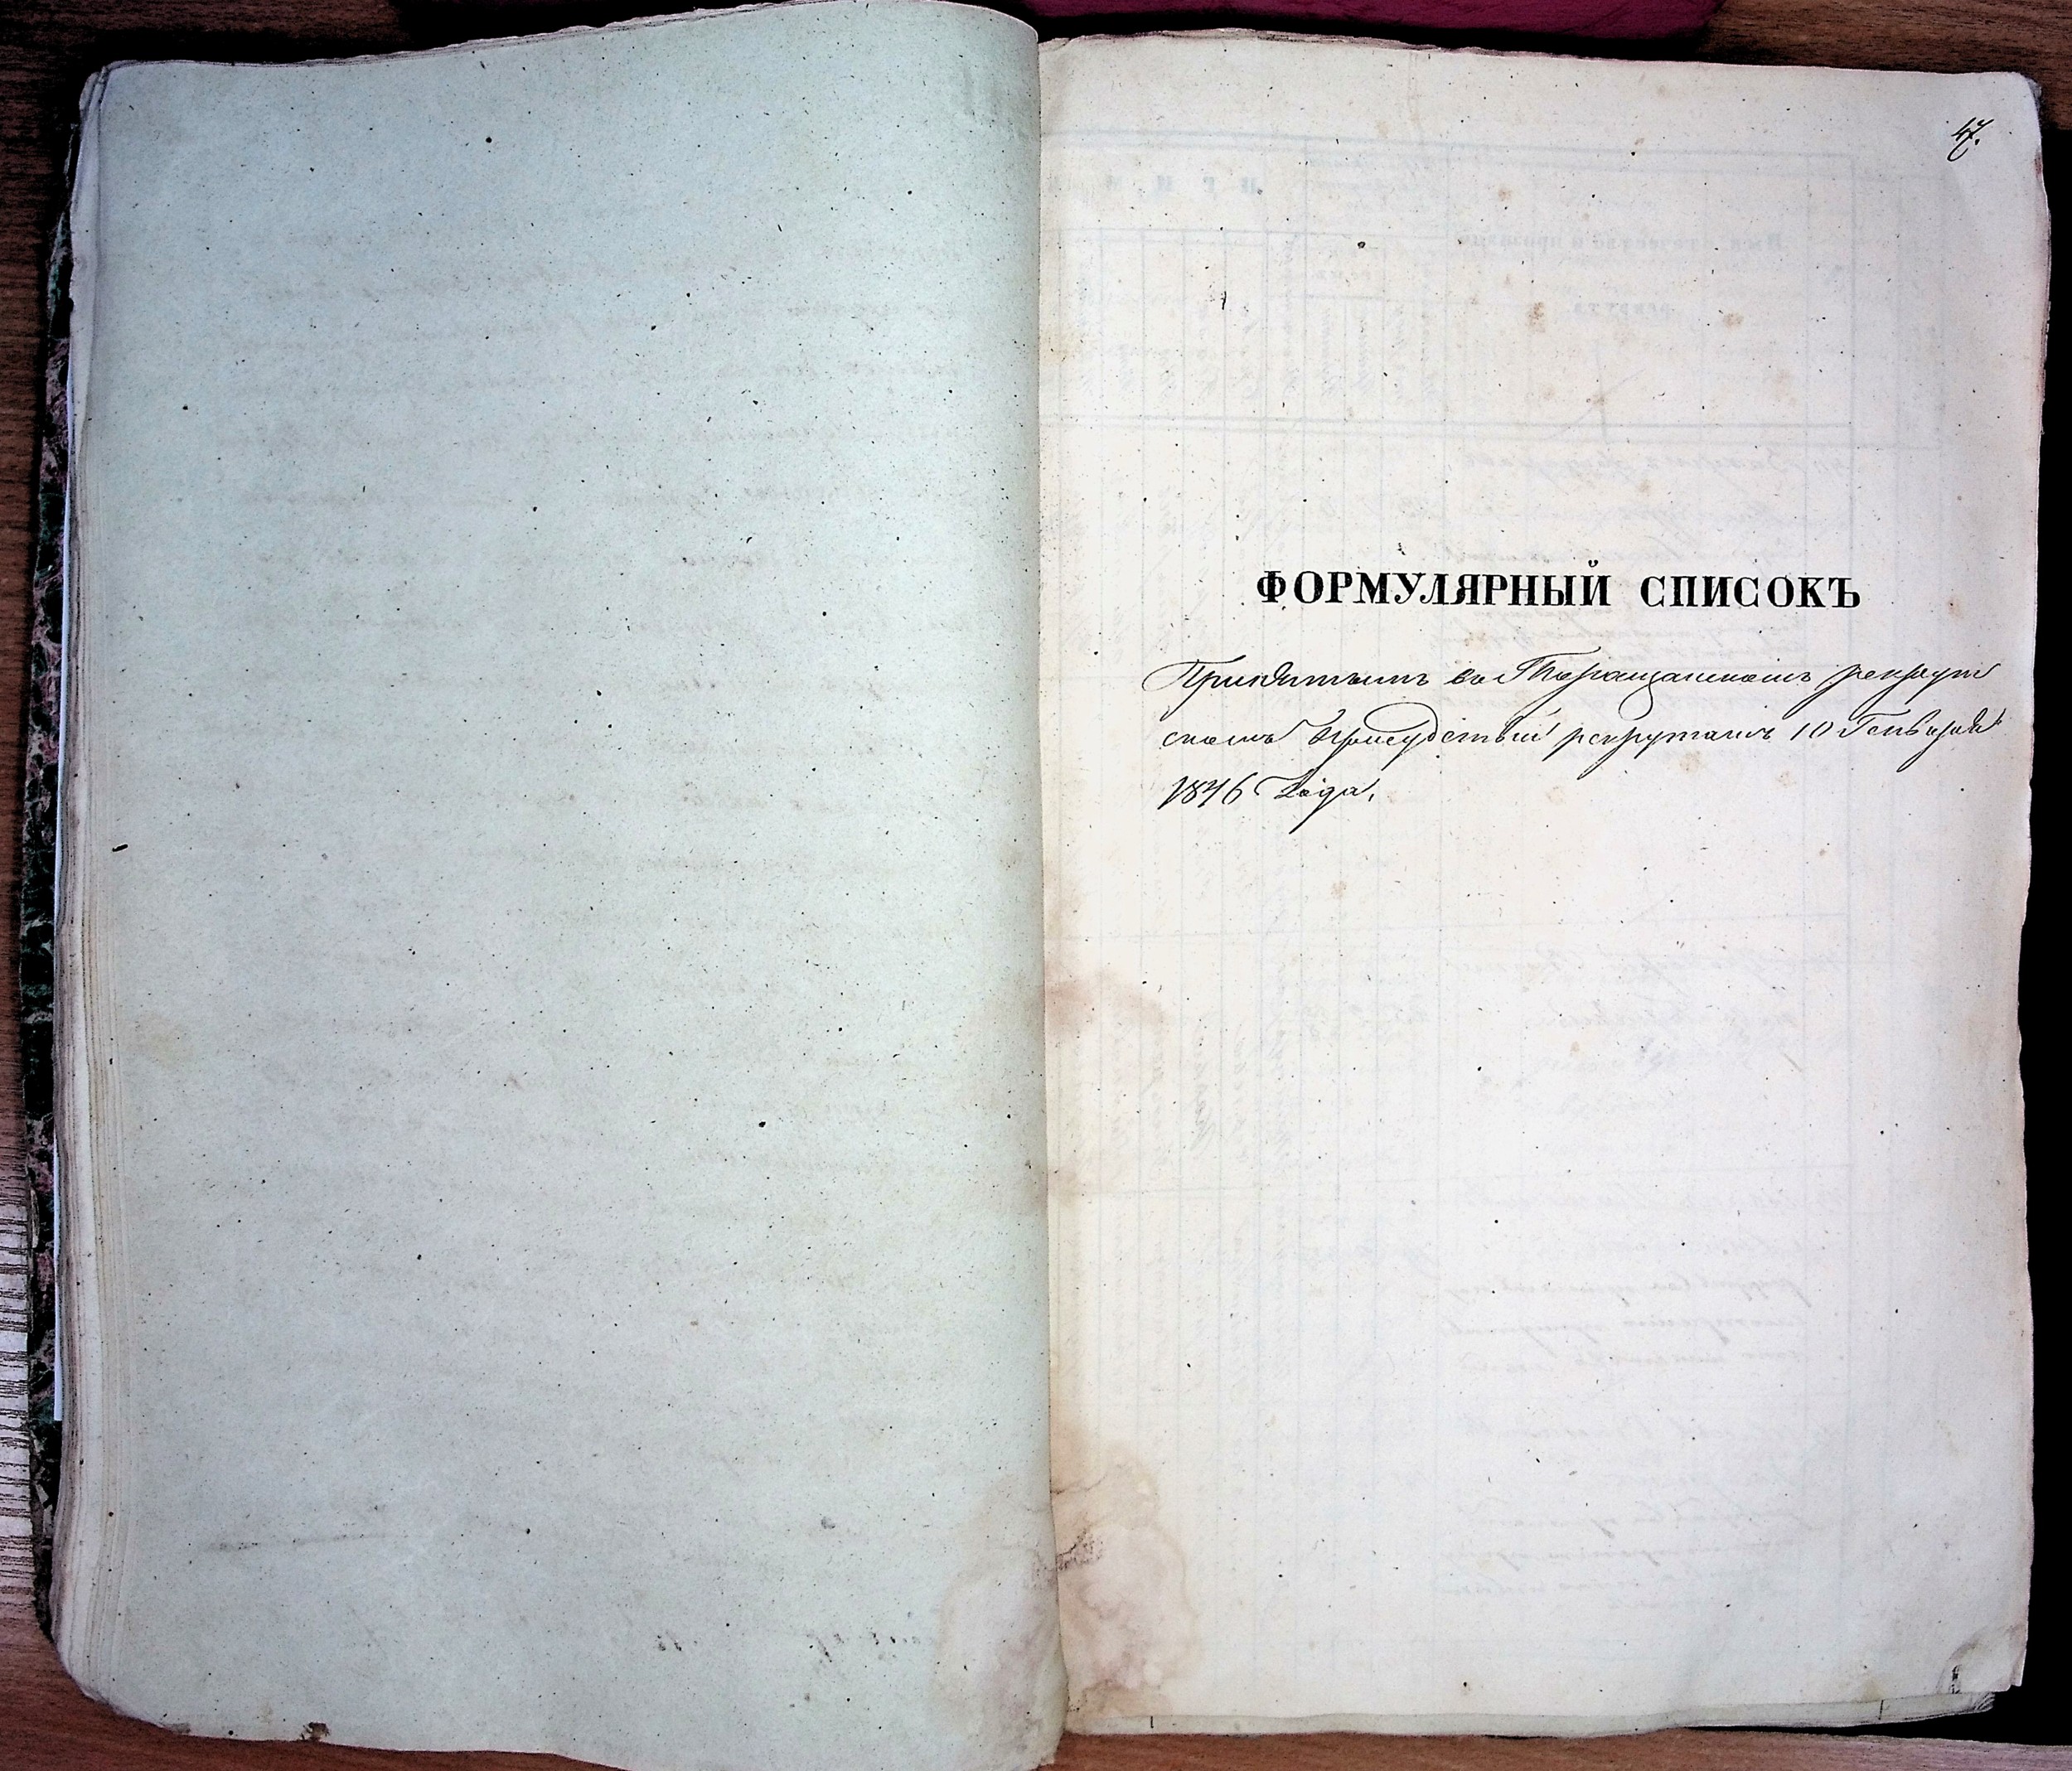 47.
ФОРМУЛЯРНЫЙ СПИСОКЪ
Принятымъ въ Таращанскомъ рекрут
скомъ Присудствіи рекрутамъ 10 Генваря
1846 Года,